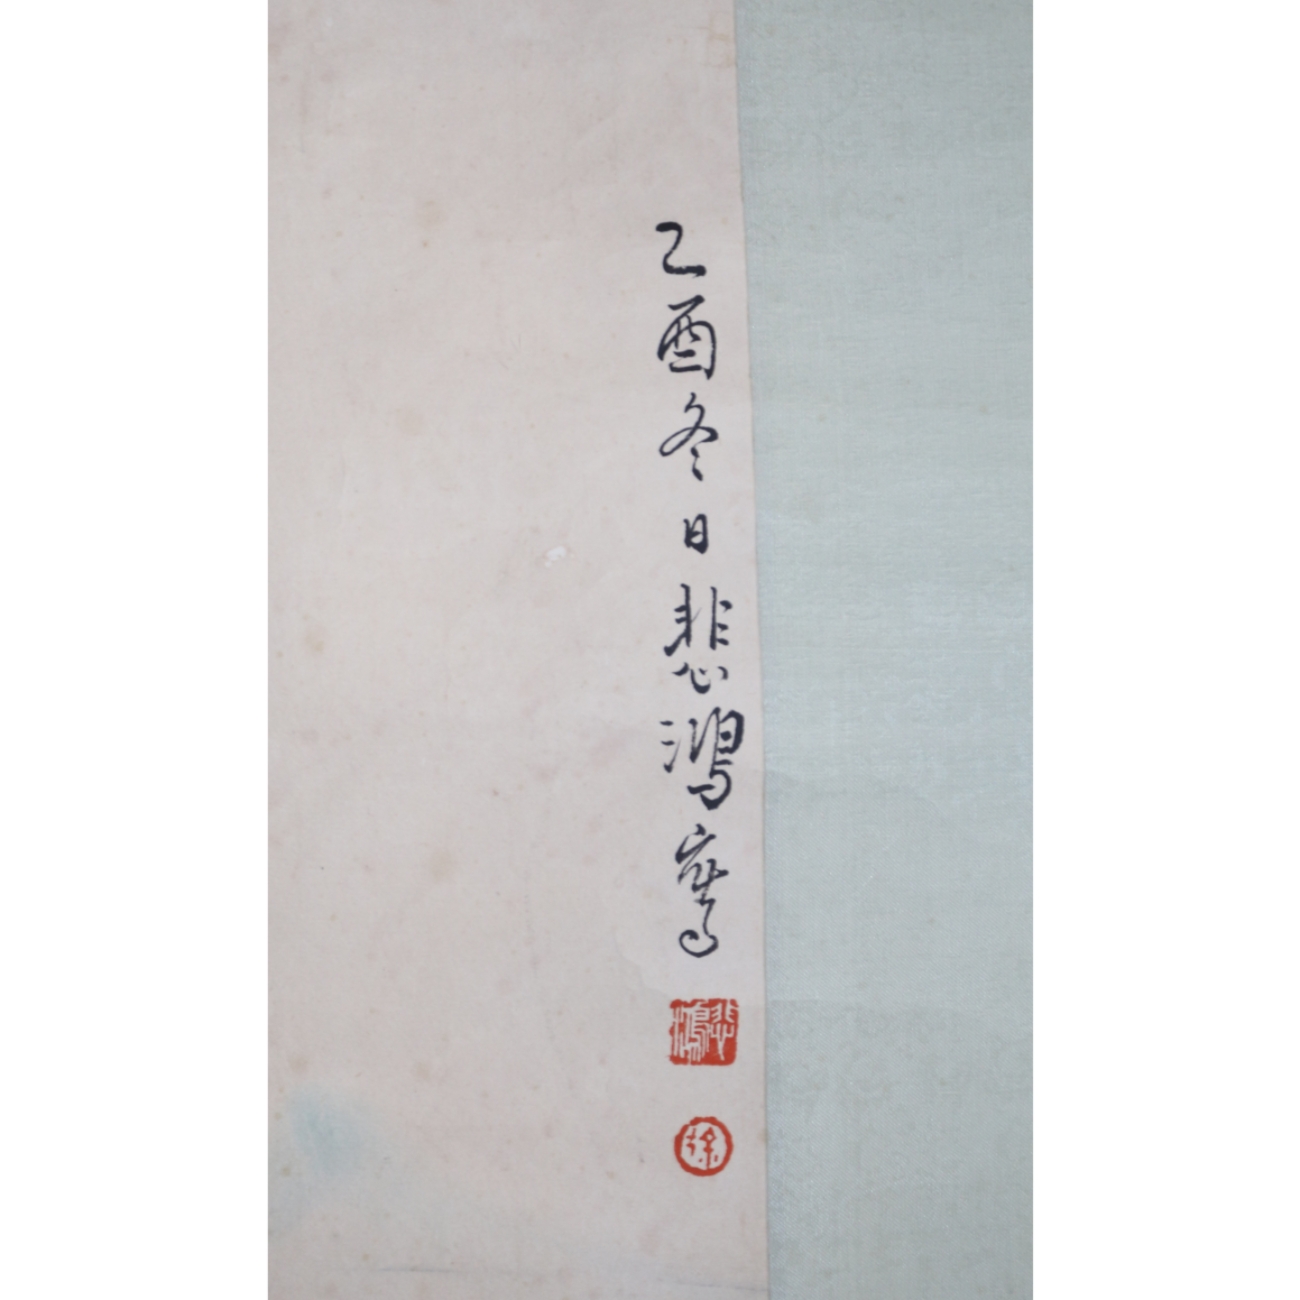 乙酉冬日悲鴻寫
悲鴻
徐